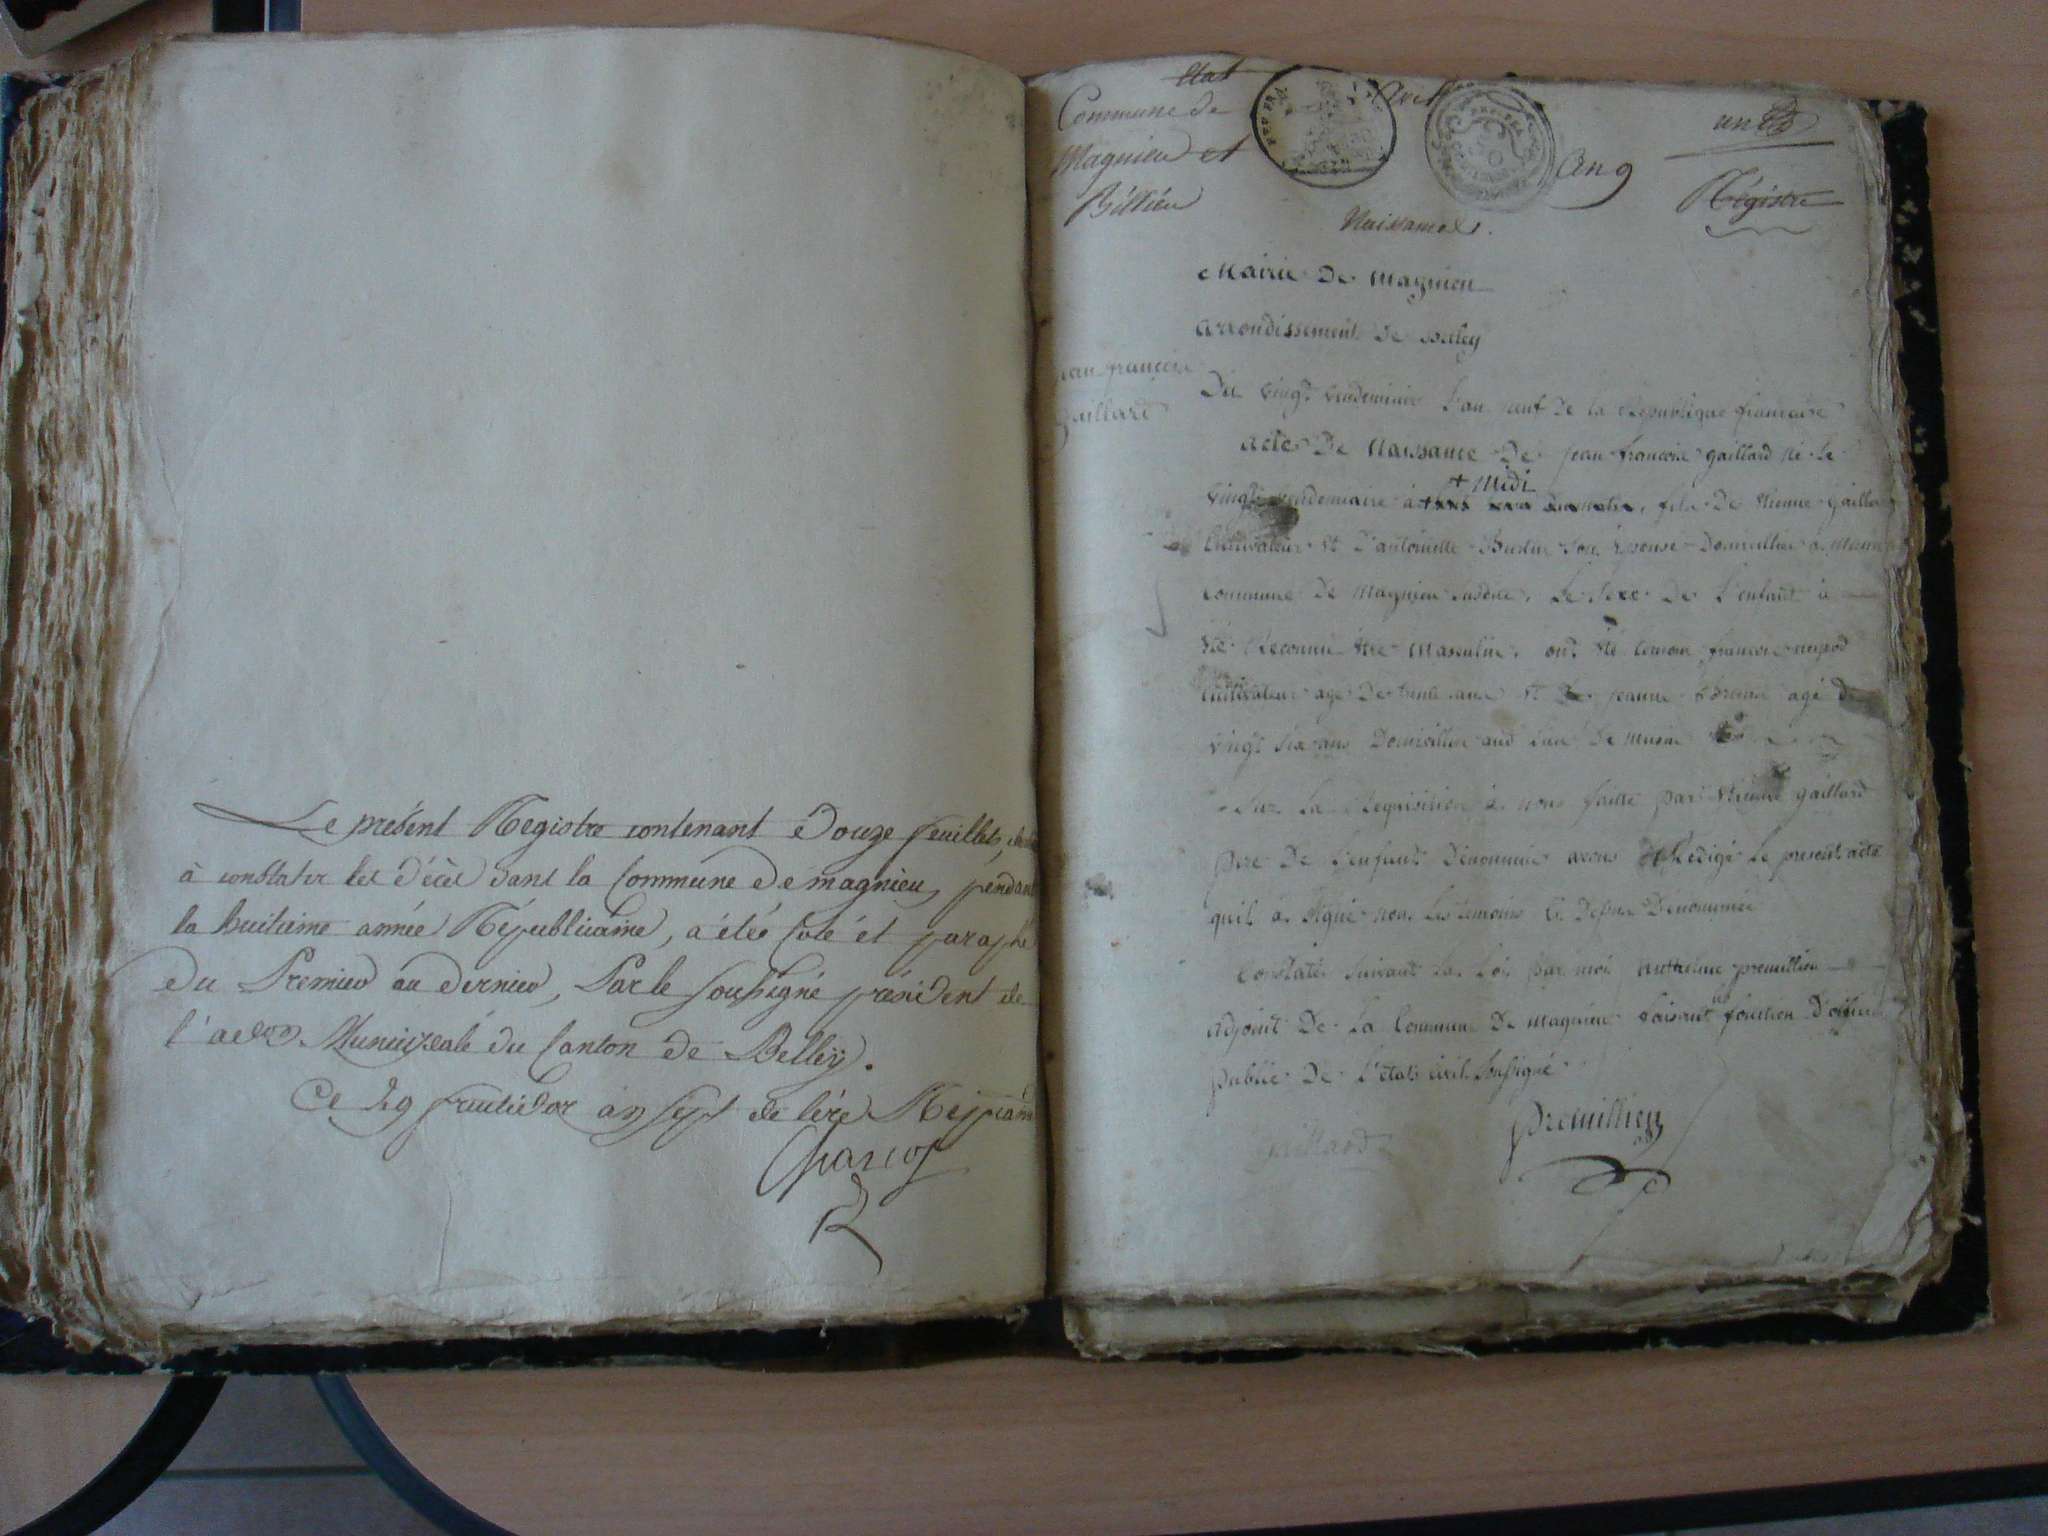 Le présent Registre contenant Douze feuillets,
à constater les décès dans la Commune de magnieu, pendant
la huitieme année Républicaine, a été coté et paraphé
du Premier au dernier, Par le soussigné président de
l'adon. Municipale du Canton de Belley.
Ce 29 fructidor an sept de l'ère Répcaine
Parcof
Etat Civil
Commune de
Magnieu et
Billieu
an 9
un
Régistre
Naissances.
Mairie de magnieu
arrondissement de belley
jean françois
gaillard
Du vingt vendemiaire l'an neuf de la republique francaise
acte de Naissance de jean francois gaillard né le
+ Midi
vingt vendemiaire à fils de Etienne gaillard
cultivateur et d'antoinette Burlin son Epouse Domicilliés à
commune de magnieu susdite. Le sexe de l'enfant à
été Reconnu être masculin. ont été temoin francois
cultivateur agé de trente ans et de jeanne agé de
vingt six ans Domicillier aud lieu de musin
Sur la Requisition à nous faitte par Etienne gaillard
père de l'enfant Denommé avons Redigé le present acte
quil à signé non les temoins Denommée
Constaté suivant la loi par moi Anthelme premillieu
adjoint de la Commune de magnieu faisant les fonction d'officier
public de l'etat civil soussigné
gaillard
premillieu